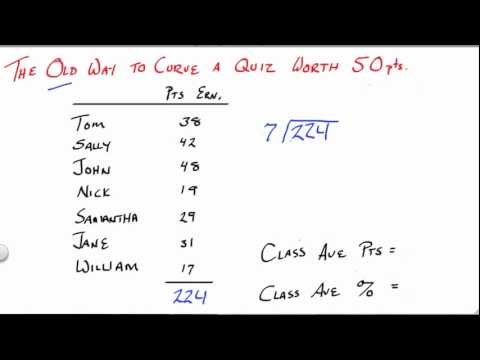 THE OLD WAY TO CURVE A QUIZ WORTH 50 pts.
PTS ERN.
TOM 38
SALLY 42
JOHN 48
NICK 19
SAMANTHA 29
JANE 31
WILLIAM 17
224
7 224
CLASS AVE PTS =
CLASS AVE % =